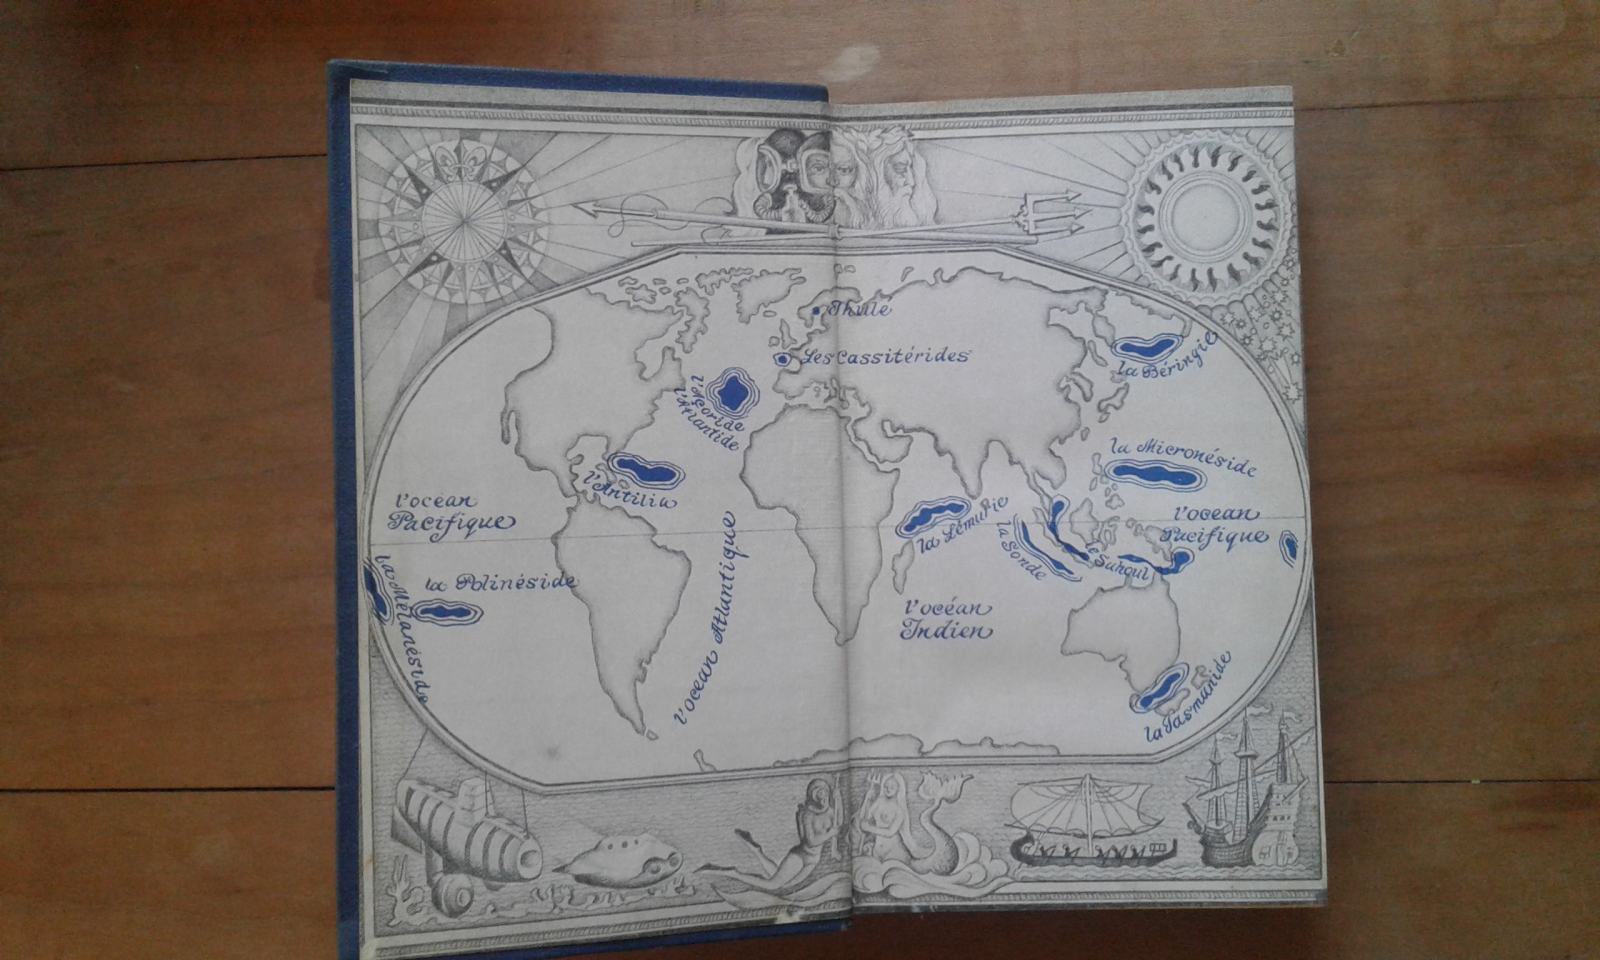 Thule
Les Cassitérides
la Béringie
l'Açoride
l'Atlantide
l'Antilia
la Micronéside
l'océan
Pacifique
l'océan
Pacifique
la Lémurie
la Sonde
le Sahoul
la Mélanéside
la Polinéside
l'océan Atlantique
l'océan
Indien
la Tasmanide